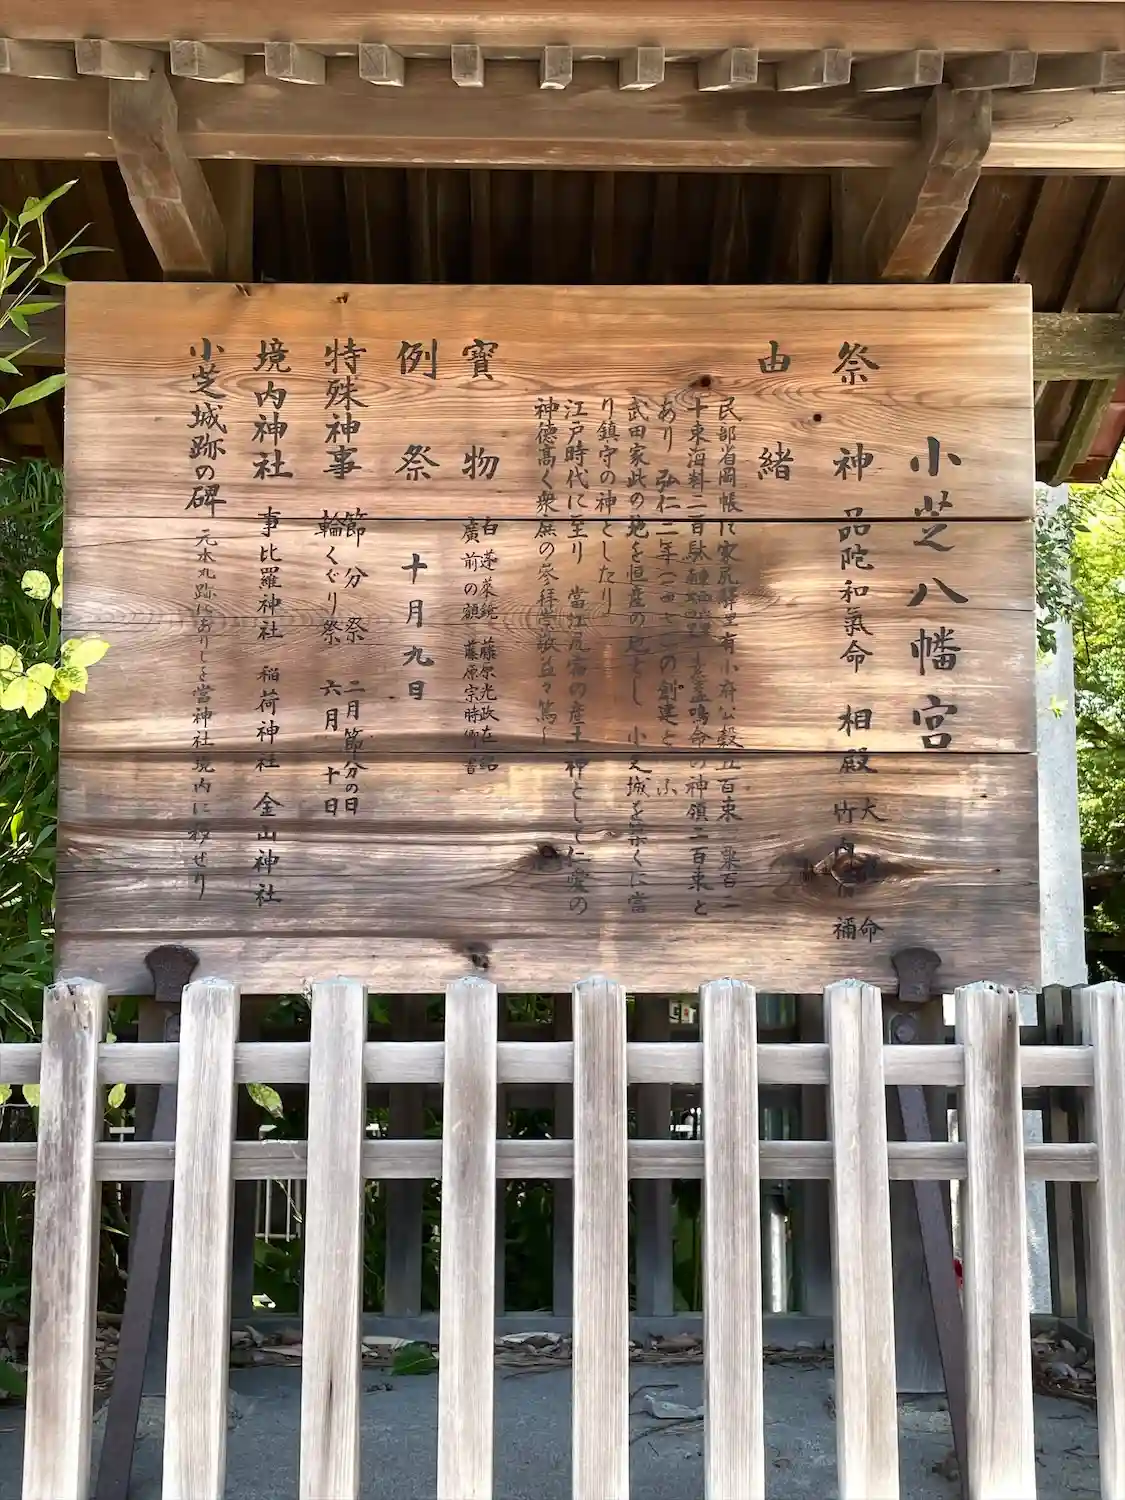 小芝八幡宮
祭神 品陀和氣命 相殿 大 命
竹内 禰
由緒
民部省岡帳に 里有小府公穀五百束 粟百二
十束海料二百駄 鳴命の神領二百束と
あり 弘仁二年 の創建と
武田家此の地を恒産の地とし 小芝城を築くに當
り鎮守の神としたり
江戸時代に至り 當江尻宿の産土神として仁愛の
神徳高く衆庶の參拝 益々篤し
寶物 白蓬萊鏡 藤原光政在銘
廣前の額 藤原宗時卿 書
例祭 十月九日
特殊神事 節分祭 二月節分の日
輪くぐり祭 六月三十日
境内神社 事比羅神社 稲荷神社 金山神社
小芝城跡の碑 元本丸跡にありしを當神社境内に移せり